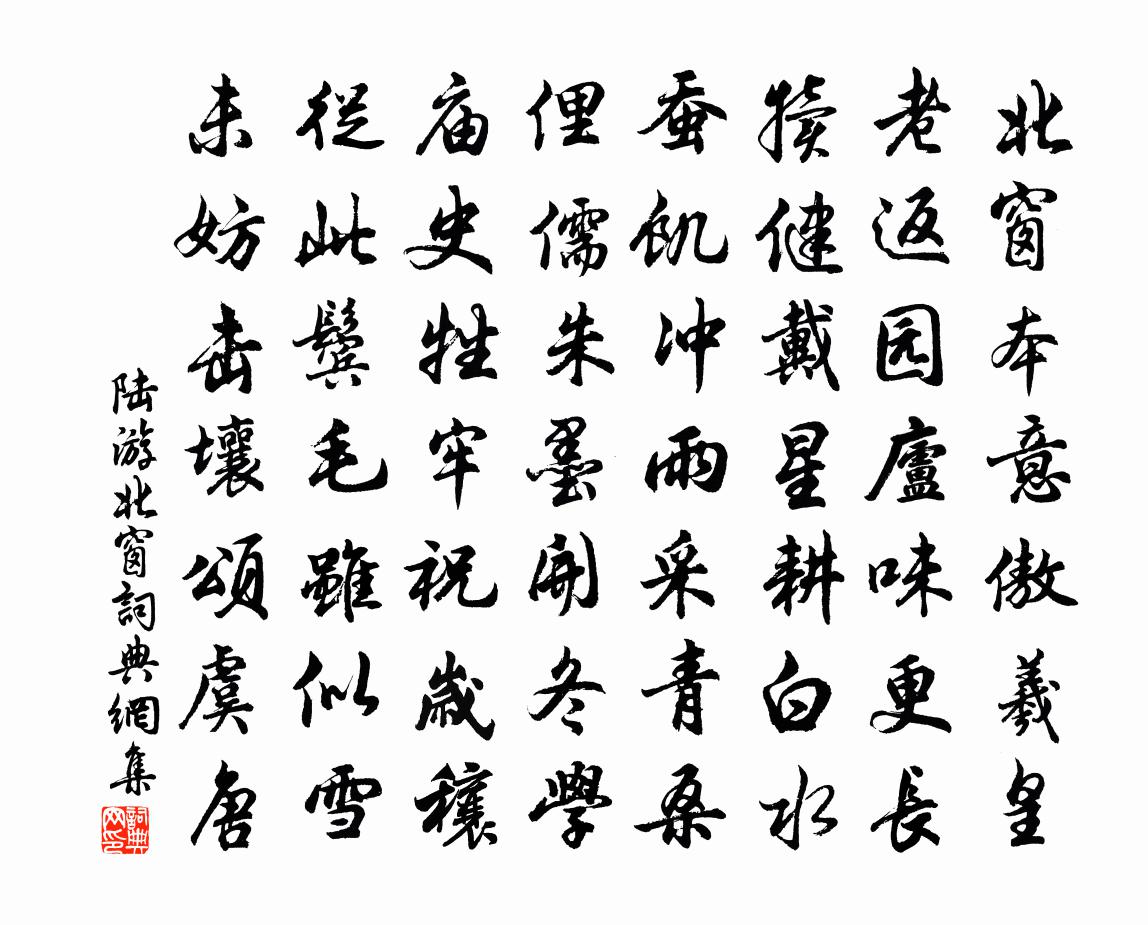 北窗本意傲羲皇
老返园廬味更長
犢健戴星耕白水
蚕飢冲雨采青桑
俚儒朱墨開冬學
庙史牲牢祝歲穰
從此鬢毛雖似雪
未妨击壤頌虞唐
陆游北窗詞典網集
詞典网印